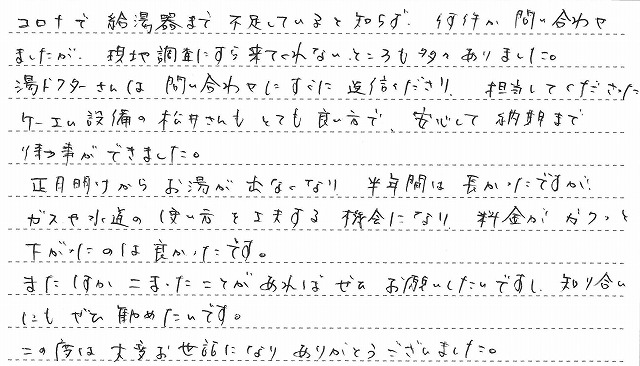 コロナで 給湯器まで 不足していると知らず、何件か 問い合わせ
ましたが、現地調査にすら来てくれない ところも多々ありました。
湯ドクターさんは 問い合わせにすぐに 返信くださり、担当してくださった
ケーエム設備の 松井さんも とても良い方で、安心して 納期まで
待つ事ができました。
正月明けから お湯が 出なくなり 半年間は 長かったですが、
ガスや水道の 使い方を工夫する 機会になり 料金が ガクッと
下がったのは 良かったです。
また なにか こまったことがあれば ぜひ お願いしたいですし、知り合い
にも ぜひ 勧めたいです。
この度は 大変お世話になり ありがとうございました。